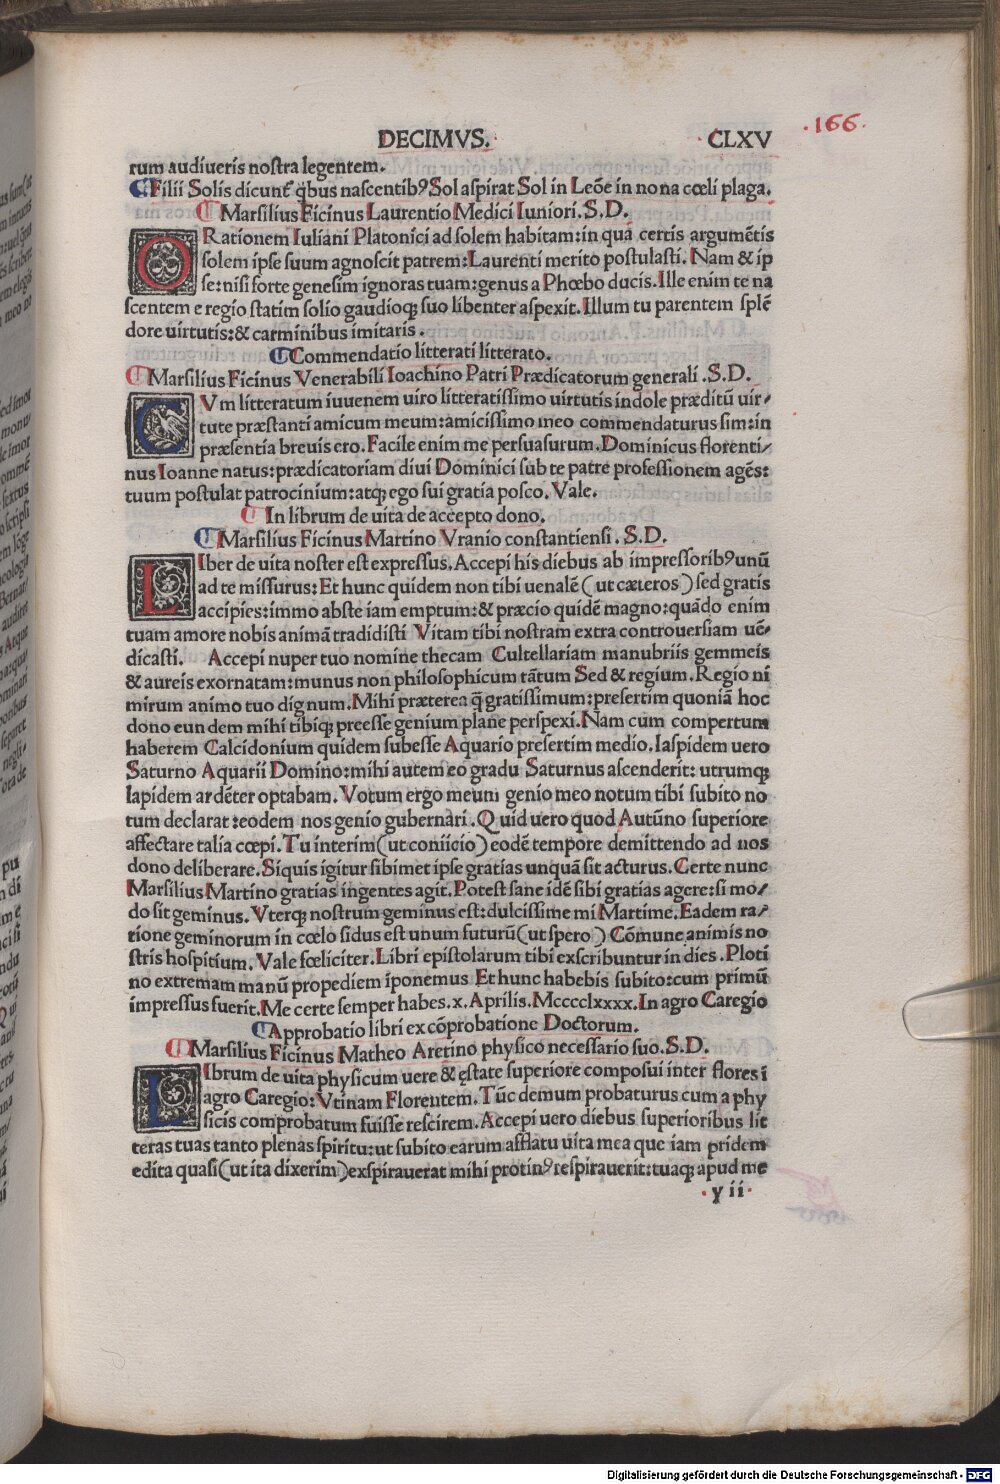 DECIMVS. CLXV ·166·
rum audiueris nostra legentem.
Filii Solis dicunt̉ q̇bus nascentibꝰ Sol aspirat Sol in Leõe in nona cœli plaga.
Marsilius Ficinus Laurentio Medici Iuniori. S.D.
ORationem Iuliani Platonici ad solem habitam: in qua certis argumẽtis
solem ipse suum agnoscit patrem: Laurenti merito postulasti. Nam & ip
se: nisi forte genesim ignoras tuam: genus a Phœbo ducis. Ille enim te na
scentem e regio statim solio gaudioqꝫ suo libenter aspexit. Illum tu parentem splẽ
dore uirtutis: & carminibus imitaris.
Commendatio litterati litterato.
Marsilius Ficinus Venerabili Ioachino Patri Prædicatorum generali. S.D.
CVm litteratum iuuenem uiro litteratissimo uirtutis indole præditũ uir/
tute præstanti amicum meum: amicissimo meo commendaturus sim: in
præsentia breuis ero. Facile enim me persuasurum. Dominicus florenti/
nus Ioanne natus: prædicatoriam diui Dominici sub te patre professionem agẽs:
tuum postulat patrocinium: atqꝫ ego sui gratia posco. Vale.
In librum de uita de accepto dono.
Marsilius Ficinus Martino Vranio constantiensi. S.D.
LIber de uita noster est expressus. Accepi his diebus ab impressoribꝰ unũ
ad te missurus: Et hunc quidem non tibi uenalẽ (ut cæteros) sed gratis
accipies: immo abste iam emptum: & præcio quidẽ magno: quãdo enim
tuam amore nobis animã tradidisti Vitam tibi nostram extra controuersiam uẽ/
dicasti. Accepi nuper tuo nomine thecam Cultellariam manubriis gemmeis
& aureis exornatam: munus non philosophicum tãtum Sed & regium. Regio ni
mirum animo tuo dignum. Mihi præterea q̃ gratissimum: presertim quoniã hoc
dono eundem mihi tibiqꝫ preesse genium plane perspexi. Nam cum compertum
haberem Calcidonium quidem subesse Aquario presertim medio. Iaspidem uero
Saturno Aquarii Domino: mihi autem eo gradu Saturnus ascenderit: utrumqꝫ
lapidem ardẽter optabam. Votum ergo meum genio meo notum tibi subito no
tum declarat: eodem nos genio gubernari. Quid uero quod Autũno superiore
affectare talia cœpi. Tu interim (ut coniicio) eodẽ tempore demittendo ad nos
dono deliberare. Siquis igitur sibimet ipse gratias unquã sit acturus. Certe nunc
Marsilius Martino gratias ingentes agit. Potest sane idẽ sibi gratias agere: si mo/
do sit geminus. Vterqꝫ nostrum geminus est: dulcissime mi Martime. Eadem ra/
tione geminorum in cœlo sidus est unum futurũ (ut spero) Cõmune animis no
stris hospitium. Vale fœliciter. Libri epistolarum tibi exscribuntur in dies. Ploti
no extremam manũ propediem iponemus Et hunc habebis subito: cum primũ
impressus fuerit. Me certe semper habes. x. Aprilis. Mcccclxxxx. In agro Caregio
Approbatio libri ex cõprobatione Doctorum.
Marsilius Ficinus Matheo Aretino physico necessario suo. S.D.
LIbrum de uita physicum uere & ęstate superiore composui inter flores ĩ
agro Caregio: Vtinam Florentem. Tũc demum probaturus cum a phy
sicis comprobatum fuisse rescirem. Accepi uero diebus superioribus lit
teras tuas tanto plenas spiritu: ut subito earum afflatu uita mea que iam pridem
edita quasi (ut ita dixerim) exspirauerat mihi protinꝰ respirauerit: tuaqꝫ apud me
·y ii·
Digitalisierung gefördert durch die Deutsche Forschungsgemeinschaft - DFG